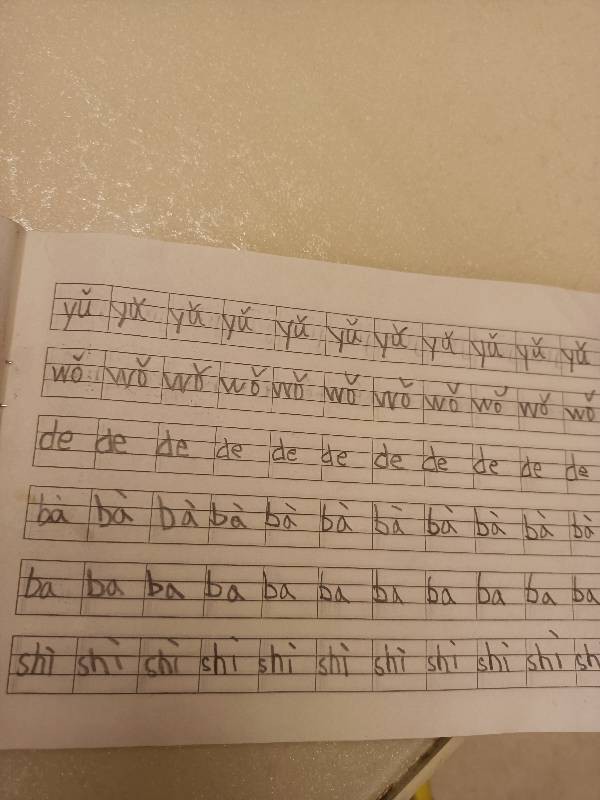 yǔ yǔ yǔ yǔ yǔ yǔ yǔ yǔ yǔ yǔ yǔ
wǒ wǒ wǒ wǒ wǒ wǒ wǒ wǒ wǒ wǒ wǒ
de de de de de de de de de de de
bà bà bà bà bà bà bà bà bà bà bà
ba ba ba ba ba ba ba ba ba ba ba
shì shì shì shì shì shì shì shì shì shì sh